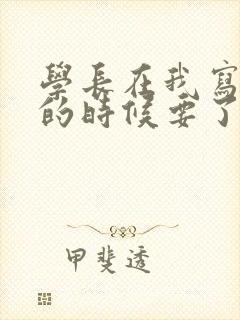 學長在我寫
的時候要了
甲斐透